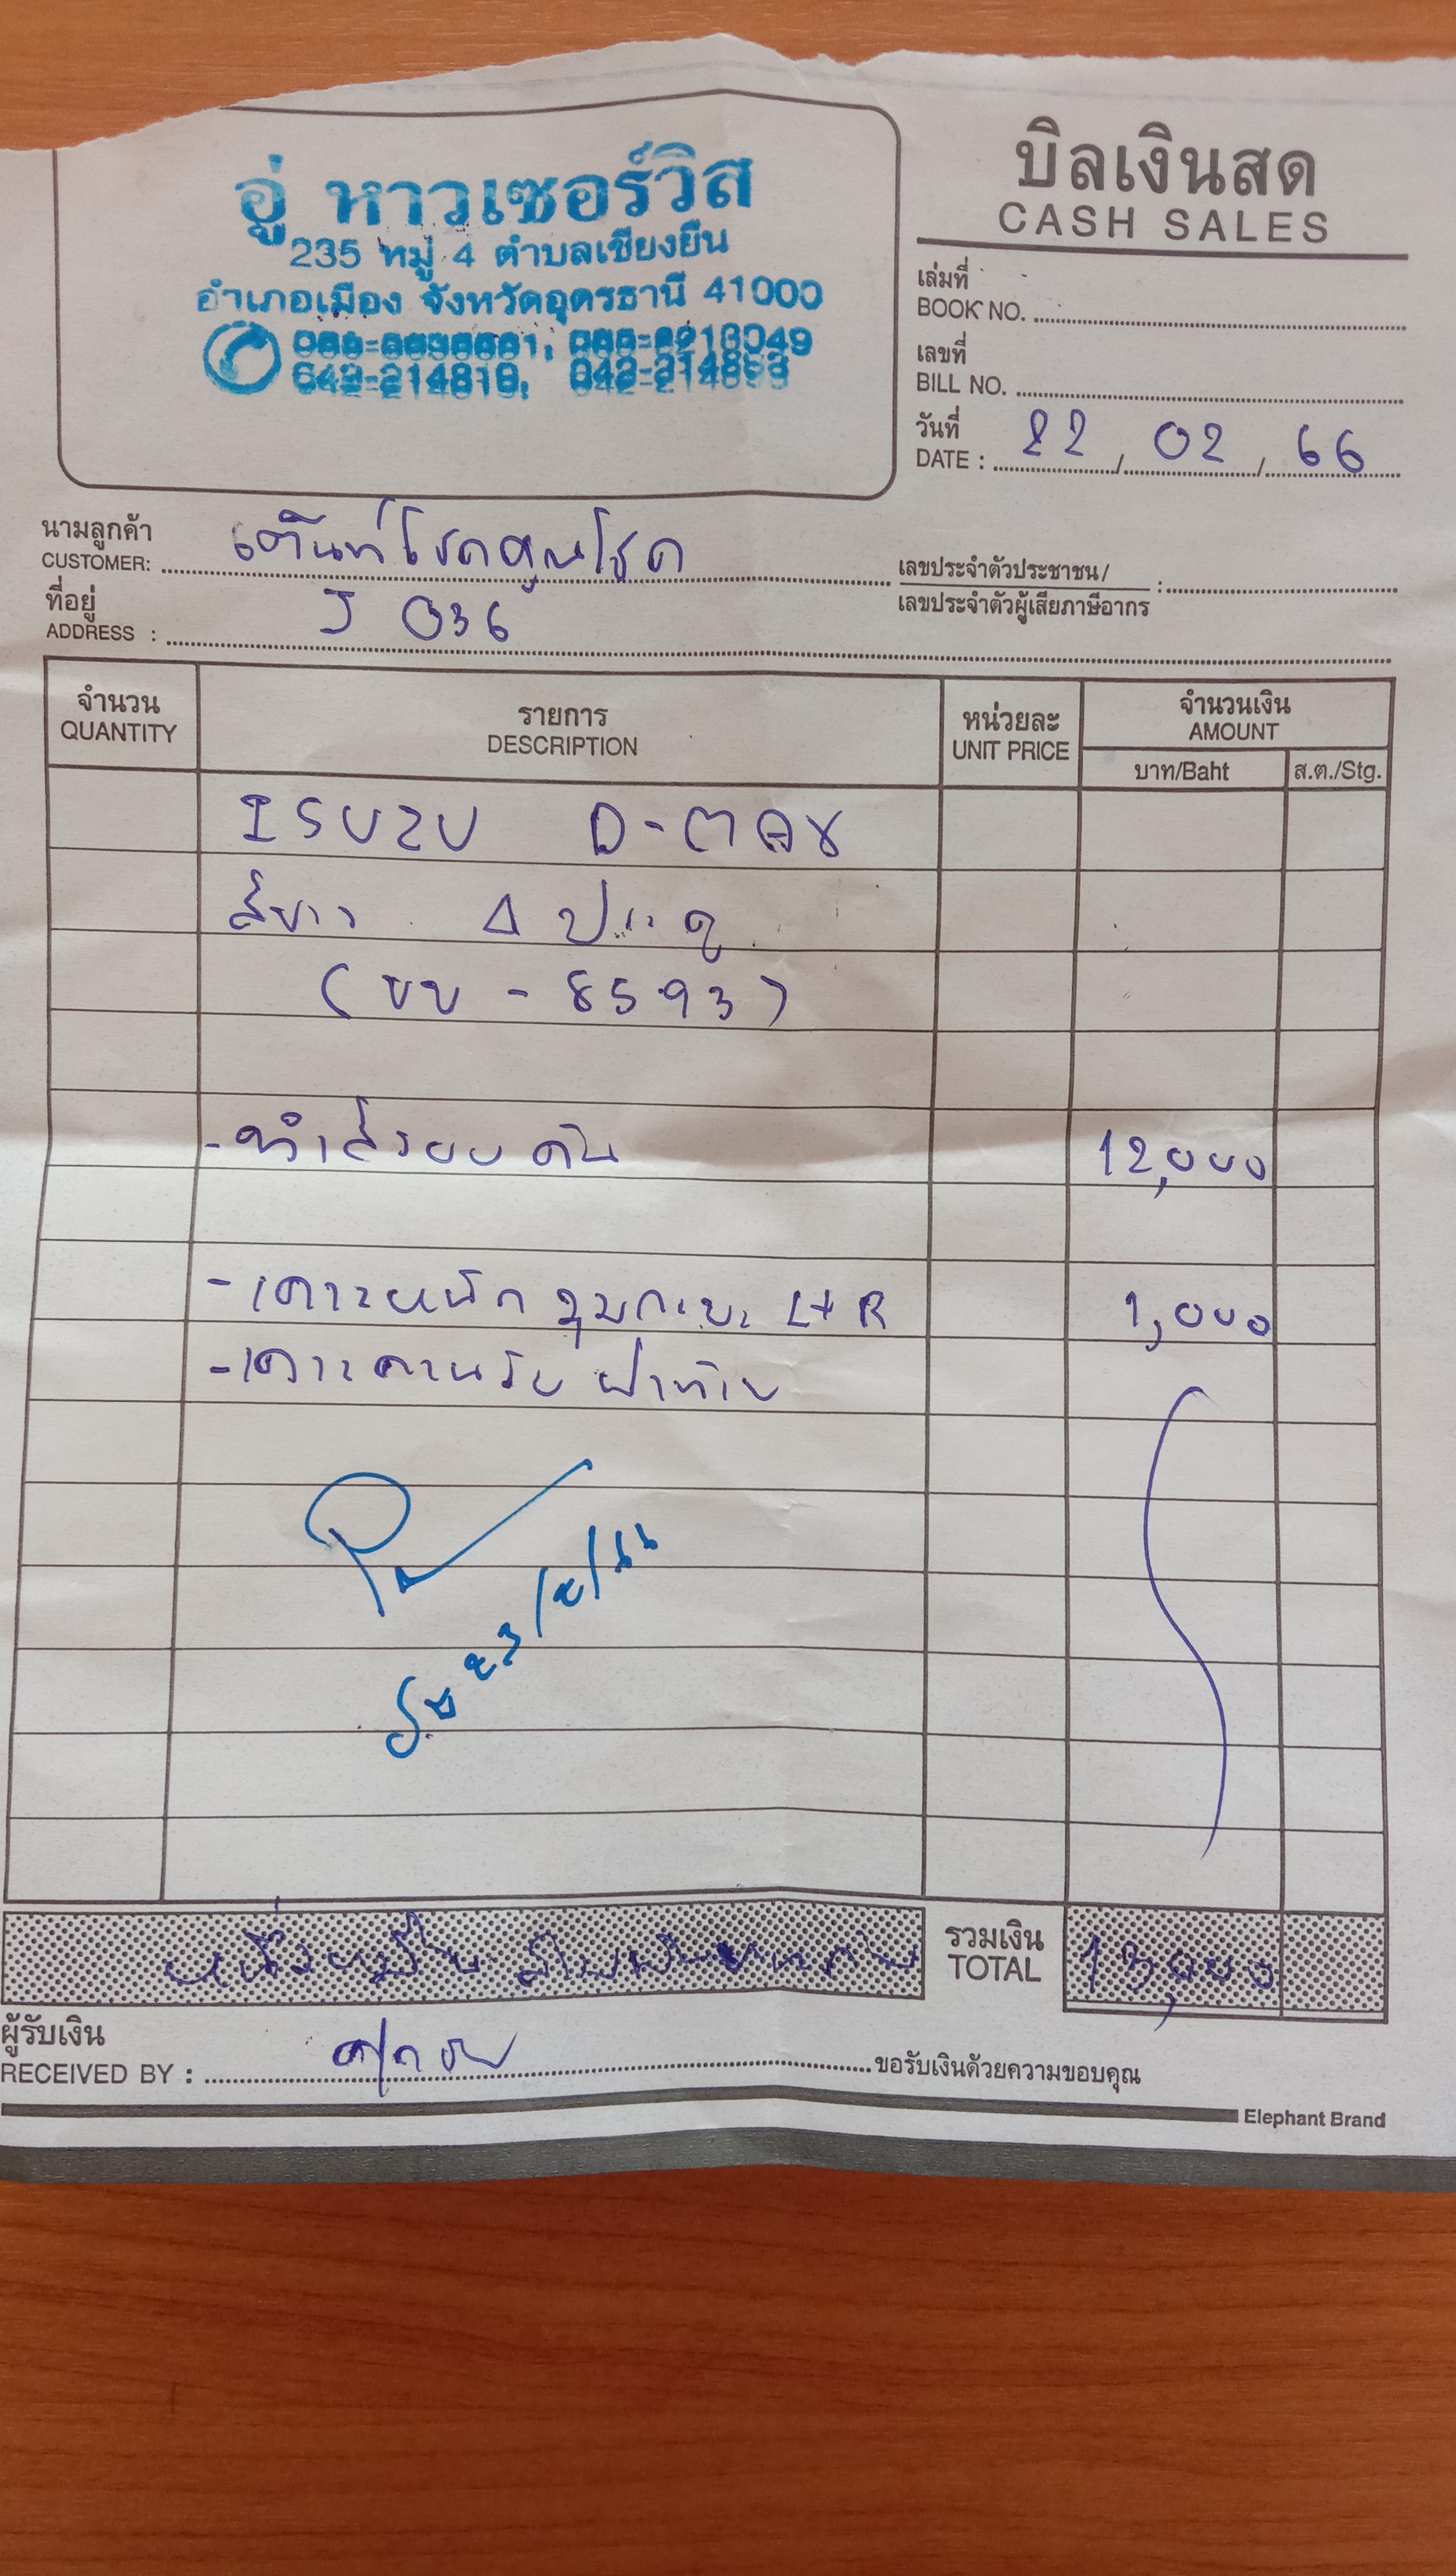 อู่ หาวเซอร์วิส
235 หมู่ 4 ตำบลเชียงยืน
อำเภอเมือง จังหวัดอุดรธานี 41000
บิลเงินสด
CASH SALES
เล่มที่
BOOK NO.
เลขที่
BILL NO.
วันที่
DATE : 22 / 02 / 66
นามลูกค้า
CUSTOMER: เต็นท์โชคคูณโชค
เลขประจำตัวประชาชน/
เลขประจำตัวผู้เสียภาษีอากร :
ที่อยู่
ADDRESS : J 036
จำนวน
QUANTITY
รายการ
DESCRIPTION
หน่วยละ
UNIT PRICE
จำนวนเงิน
AMOUNT
บาท/Baht
ส.ต./Stg.
ISUZU D-MAX
สีขาว 4 ประตู
(ขบ - 8593)
- ทำสีรอบคัน 12,000
- เคาะหนัก มุมกะบะ L+R 1,000
- เคาะคานรับ ฝาท้าย
รับ 23/2/66
หนึ่งหมื่นสามพันบาทถ้วน
รวมเงิน
TOTAL
13,000
ผู้รับเงิน
RECEIVED BY :
ขอรับเงินด้วยความขอบคุณ
Elephant Brand